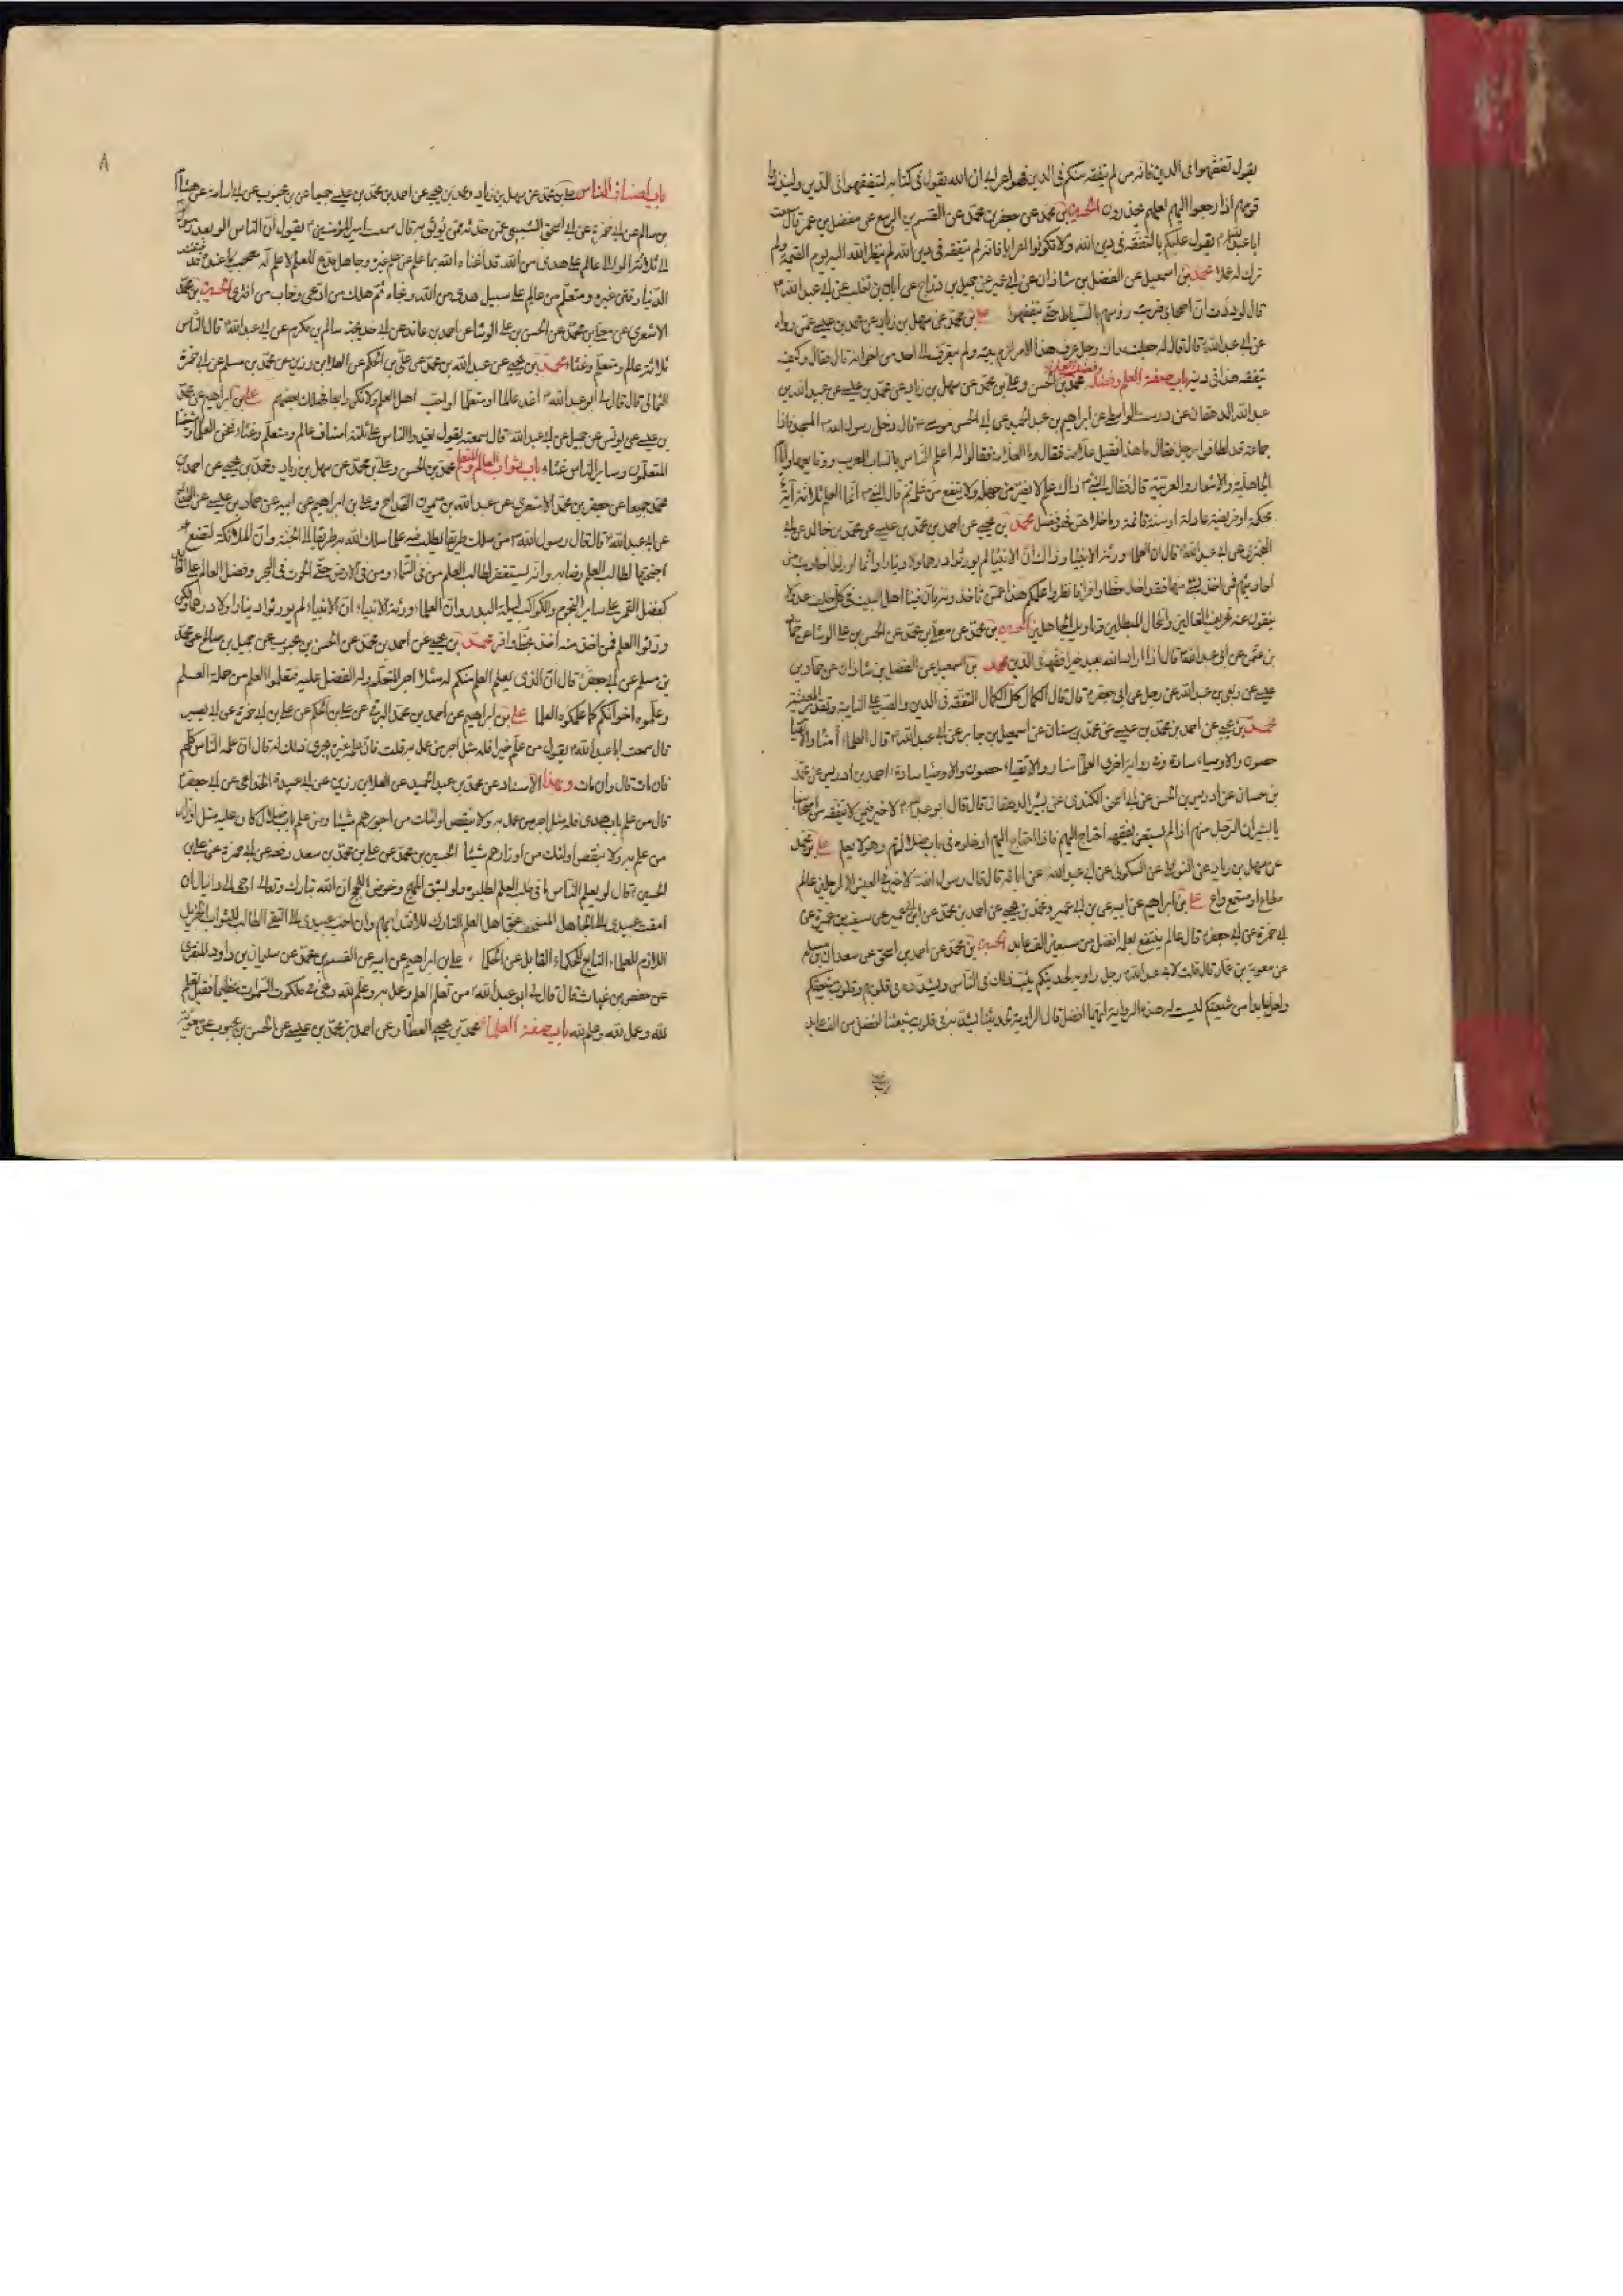 يقول تفقهوا فى الدين فانه من لم يتفقه منكم فى الدين فهو اعرابى ان الله يقول فى كتابه ليتفقهوا فى الدين ولينذروا
قومهم اذا رجعوا اليهم لعلهم يحذرون الحسين بن محمد عن جعفر بن محمد عن القسم بن الربيع عن مفضل بن عمر قال سمعت
ابا عبد الله يقول عليكم بالتفقه فى دين الله ولا تكونوا اعرابا فانه لم يتفقه فى دين الله لم ينظر الله اليه يوم القيمة ولم
يزك له عملا محمد بن اسمعيل عن الفضل بن شاذان عن ابى عمير عن جميل بن دراج عن ابان بن تغلب عن ابى عبد الله ع
قال لوددت ان اصحابى ضربت رؤسهم بالسياط حتى يتفقهوا على بن محمد عن سهل بن زياد عن محمد بن عيسى عمن رواه
عن ابى عبد الله قال قال له جعلت فداك رجل عرف هذا الامر لزم بيته ولم يتعرف الى احد من اخوانه قال فقال وكيف
يتفقه هذا فى دينه باب صفة العلم وفضله محمد بن الحسن وعلى بن محمد عن سهل بن زياد عن محمد بن عيسى عن عبيد الله بن
عبد الله الدهقان عن درست الواسطى عن ابراهيم بن عبد الحميد عن ابى الحسن موسى ع قال دخل رسول الله ص المسجد فاذا
جماعة قد اطافوا برجل فقال ما هذا فقيل علامة فقال وما العلامة فقالوا له اعلم الناس بانساب العرب ووقايعها وايام
الجاهلية والاشعار والعربية قال فقال النبى ص ذاك علم لا يضر من جهله ولا ينفع من علمه ثم قال النبى ص انما العلم ثلاثة آية
محكمة او فريضة عادلة او سنة قائمة وما خلاهن فهو فضل محمد بن يحيى عن احمد بن محمد بن عيسى عن محمد بن خالد عن ابى
البخترى عن ابى عبد الله قال ان العلماء ورثة الانبياء وذاك ان الانبياء لم يورثوا درهما ولا دينارا وانما اورثوا احاديث من
احاديثهم فمن اخذ بشئ منها فقد اخذ حظا وافرا فانظروا علمكم هذا عمن تاخذونه فان فينا اهل البيت فى كل خلف عدولا
ينفون عنه تحريف الغالين وانتحال المبطلين وتاويل الجاهلين الحسين بن محمد عن معلى بن محمد عن الحسن بن على الوشا عن حماد
بن عثمن عن ابى عبد الله قال اذا اراد الله بعبد خيرا فقهه فى الدين محمد بن اسمعيل عن الفضل بن شاذان عن حماد بن
عيسى عن ربعى بن عبد الله عن رجل عن ابى جعفر ع قال قال الكمال كل الكمال التفقه فى الدين والصبر على النايبة وتقدير المعيشة
محمد بن يحيى عن احمد بن محمد بن عيسى عن محمد بن سنان عن اسمعيل بن جابر عن ابى عبد الله ع قال العلماء امناء والاتقياء
حصون والاوصياء سادة وفى رواية اخرى العلماء منار والاتقياء حصون والاوصياء سادة احمد بن ادريس عن محمد
بن حسان عن ادريس بن الحسن عن ابى اسحق الكندى عن بشير الدهقان قال قال ابو عبد الله ع لا خير فيمن لا يتفقه من اصحابنا
يا بشير ان الرجل منهم اذا لم يستغن بفقهه احتاج اليهم فاذا احتاج اليهم ادخلوه فى باب ضلالتهم وهو لا يعلم على بن محمد
عن سهل بن زياد عن النوفلى عن السكونى عن ابى عبد الله عن ابائه قال قال رسول الله لا خير فى العيش الا لرجلين عالم
مطاع او مستمع واع على بن ابراهيم عن ابيه عن بن ابى عمير ومحمد بن يحيى عن احمد بن محمد عن بن ابى عمير عن سيف بن عميرة عن
ابى حمزة عن ابى جعفر قال عالم ينتفع بعلمه افضل من سبعين الف عابد الحسين بن محمد عن احمد بن اسحق عن سعدان بن مسلم
عن معوية بن عمار قال قلت لابى عبد الله ع رجل راوية لحديثكم يبث ذلك فى الناس ويشدده فى قلوبهم وقلوب شيعتكم
ولعل عابدا من شيعتكم ليست له هذه الرواية ايهما افضل قال الراوية لحديثنا يشد به فى قلوب شيعتنا افضل من الف عابد
٨
باب اصناف الناس على بن محمد عن سهل بن زياد ومحمد بن يحيى عن احمد بن محمد بن عيسى جميعا عن بن محبوب عن ابى اسامة عن هشام
بن سالم عن ابى حمزة عن ابى اسحق السبيعى عمن حدثه ممن يوثق به قال سمعت امير المؤمنين ع يقول ان الناس الوا بعد رسول
الى ثلاثة الوا الى عالم على هدى من الله قد اغناه الله بما علم عن علم غيره وجاهل مدع للعلم لا علم له معجب بما عنده قد فتنته
الدنيا وفتن غيره ومتعلم من عالم على سبيل هدى من الله ونجاه ثم هلك من ادعى وخاب من افترى الحسين بن محمد
الاشعرى عن معلى بن محمد عن الحسن بن على الوشا عن احمد بن عائذ عن ابى خديجة سالم بن مكرم عن ابى عبد الله قال الناس
ثلاثة عالم ومتعلم وغثاء محمد بن يحيى عن عبد الله بن محمد عن على بن الحكم عن العلا بن رزين عن محمد بن مسلم عن ابى حمزة
الثمالى قال قال لى ابو عبد الله ع اغد عالما او متعلما او احب اهل العلم ولا تكن رابعا فتهلك ببغضهم على بن ابراهيم عن محمد
بن عيسى عن يونس عن جميل عن ابى عبد الله قال سمعته يقول يغدوا الناس على ثلثة اصناف عالم ومتعلم وغثاء فنحن العلماء وشيعتنا
المتعلمون وساير الناس غثاء باب ثواب العالم والمتعلم محمد بن الحسن وعلى بن محمد عن سهل بن زياد ومحمد بن يحيى عن احمد بن
محمد جميعا عن جعفر بن محمد الاشعرى عن عبد الله بن ميمون القداح وعلى بن ابراهيم عن ابيه عن حماد بن عيسى عن القداح
عن ابى عبد الله ع قال قال رسول الله ص من سلك طريقا يطلب فيه علما سلك الله به طريقا الى الجنة وان الملائكة لتضع
اجنحتها لطالب العلم رضا به وانه يستغفر لطالب العلم من فى السماء ومن فى الارض حتى الحوت فى البحر وفضل العالم على العابد
كفضل القمر على ساير النجوم والكواكب ليلة البدر وان العلماء ورثة الانبياء ان الانبياء لم يورثوا دينارا ولا درهما ولكن
ورثوا العلم فمن اخذ منه اخذ بحظ وافر محمد بن يحيى عن احمد بن محمد عن الحسن بن محبوب عن جميل بن صالح عن محمد
بن مسلم عن ابى جعفر قال ان الذى يعلم العلم منكم له مثل اجر المتعلم وله الفضل عليه فتعلموا العلم من حملة العلم
وعلموه اخوانكم كما علمكوه العلما على بن ابراهيم عن احمد بن محمد البرقى عن على بن الحكم عن على بن ابى حمزة عن ابى بصير
قال سمعت ابا عبد الله ع يقول من علم خيرا فله مثل اجر من عمل به قلت فان علمه غيره يجرى ذلك له قال ان علمه الناس كلهم
فان مات قال وان مات وبهذا الاسناد عن محمد بن عبد الحميد عن العلا بن رزين عن ابى عبيدة الحذا عن ابى جعفر ع
قال من علم باب هدى فله مثل اجر من عمل به ولا ينقص اولئك من اجورهم شيئا ومن علم باب ضلال كان عليه مثل اوزار
من عمل به ولا ينقص اولئك من اوزارهم شيئا الحسين بن محمد عن على بن محمد بن سعد رفعه عن ابى حمزة عن على بن
الحسين ع قال لو يعلم الناس ما فى طلب العلم لطلبوه ولو بشق المهج وخوض اللجج ان الله تبارك وتعالى اوحى الى دانيال ان
امقت عبيدى الى الجاهل المستخف بحق اهل العلم التارك للاقتداء بهم وان احب عبيدى الى التقى الطالب للثواب الجزيل
اللازم للعلماء التابع للحكماء القابل عن الحكما على بن ابراهيم عن ابيه عن القسم بن محمد عن سليمان بن داود المنقرى
عن حفص بن غياث قال قال لى ابو عبد الله من تعلم العلم وعمل به وعلم لله دعى فى ملكوت السموات عظيما فقيل تعلم
لله وعمل لله وعلم لله باب صفة العلماء محمد بن يحيى العطار عن احمد بن محمد بن عيسى عن الحسن بن محبوب عن معوية